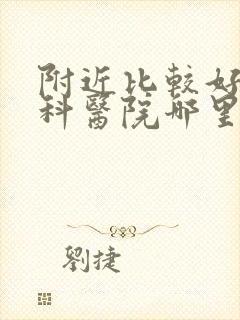 附近比較好
科醫院哪里
劉捷